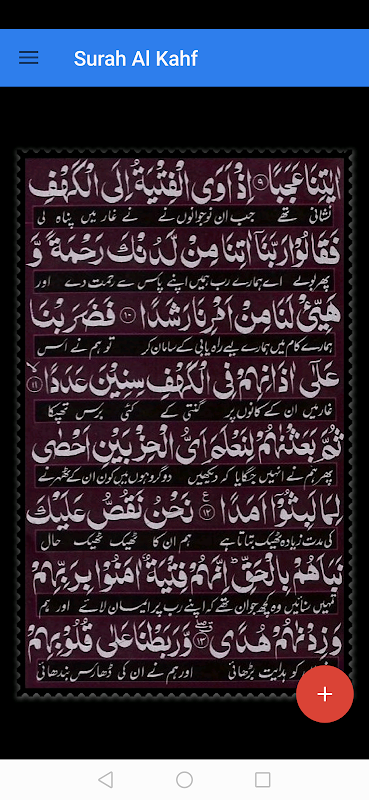 Surah Al Kahf
اٰيٰتِنَا عَجَبًا ۹ اِذْ اَوَى الْفِتْيَةُ اِلَى الْكَهْفِ
نشانی تھے جب ان نوجوانوں نے نے غار میں پناہ لی
فَقَالُوْا رَبَّنَاۤ اٰتِنَا مِنْ لَّدُنْكَ رَحْمَةً وَّ
پھر بولے اے ہمارے رب ہمیں اپنے پاس سے رحمت دے اور
هَيِّئْ لَنَا مِنْ اَمْرِنَا رَشَدًا ۱۰ فَضَرَبْنَا
ہمارے کام میں ہمارے لیے راہ یابی کے سامان کر تو ہم نے اس
عَلٰۤى اٰذَانِهِمْ فِى الْكَهْفِ سِنِيْنَ عَدَدًا ۱۱
غار میں ان کے کانوں پر گنتی کے کئی برس تھپکا
ثُمَّ بَعَثْنٰهُمْ لِنَعْلَمَ اَىُّ الْحِزْبَيْنِ اَحْصٰى
پھر ہم نے انہیں جگایا کہ دیکھیں دو گروہوں میں کون ان کے ٹھہرنے
لِمَا لَبِثُوْۤا اَمَدًا ۱۲ ع نَحْنُ نَقُصُّ عَلَيْكَ
کی مدت زیادہ ٹھیک بتاتا ہے ہم ان کا ٹھیک ٹھیک حال
نَبَاَهُمْ بِالْحَقِّ ؕ اِنَّهُمْ فِتْيَةٌ اٰمَنُوْا بِرَبِّهِمْ
تمہیں سنائیں وہ کچھ جوان تھے کہ اپنے رب پر ایمان لائے اور ہم
وَ زِدْنٰهُمْ هُدًى ۱۳ وَّ رَبَطْنَا عَلٰى قُلُوْبِهِمْ
کو ہدایت بڑھائی اور ہم نے ان کی ڈھارس بندھائی